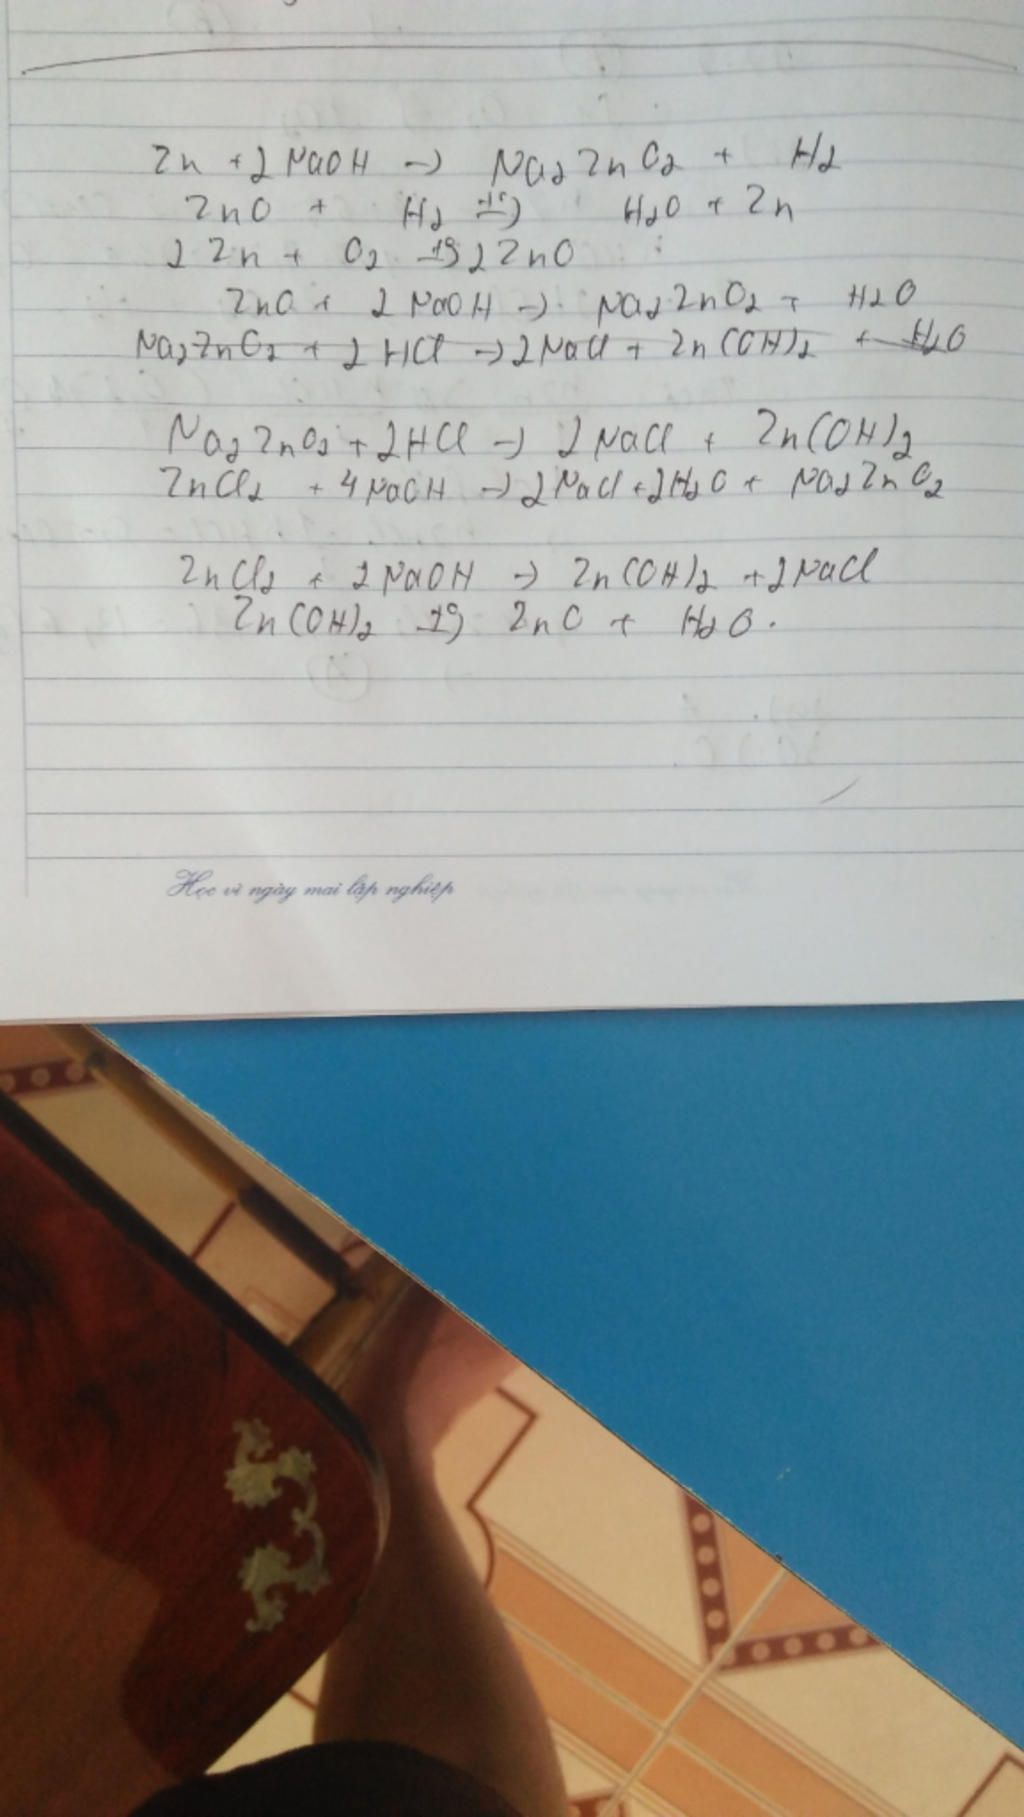 Zn + 2 NaOH → Na2ZnO2 + H2
ZnO + H2 t°→ H2O + Zn
2 Zn + O2 t°→ 2 ZnO
ZnO + 2 NaOH → Na2ZnO2 + H2O
Na2ZnO2 + 2 HCl → 2 NaCl + Zn(OH)2 + H2O
Na2ZnO2 + 2HCl → 2 NaCl + Zn(OH)2
ZnCl2 + 4 NaOH → 2 NaCl + 2H2O + Na2ZnO2
ZnCl2 + 2 NaOH → Zn(OH)2 + 2 NaCl
Zn(OH)2 t°→ ZnO + H2O.
Học vì ngày mai lập nghiệp